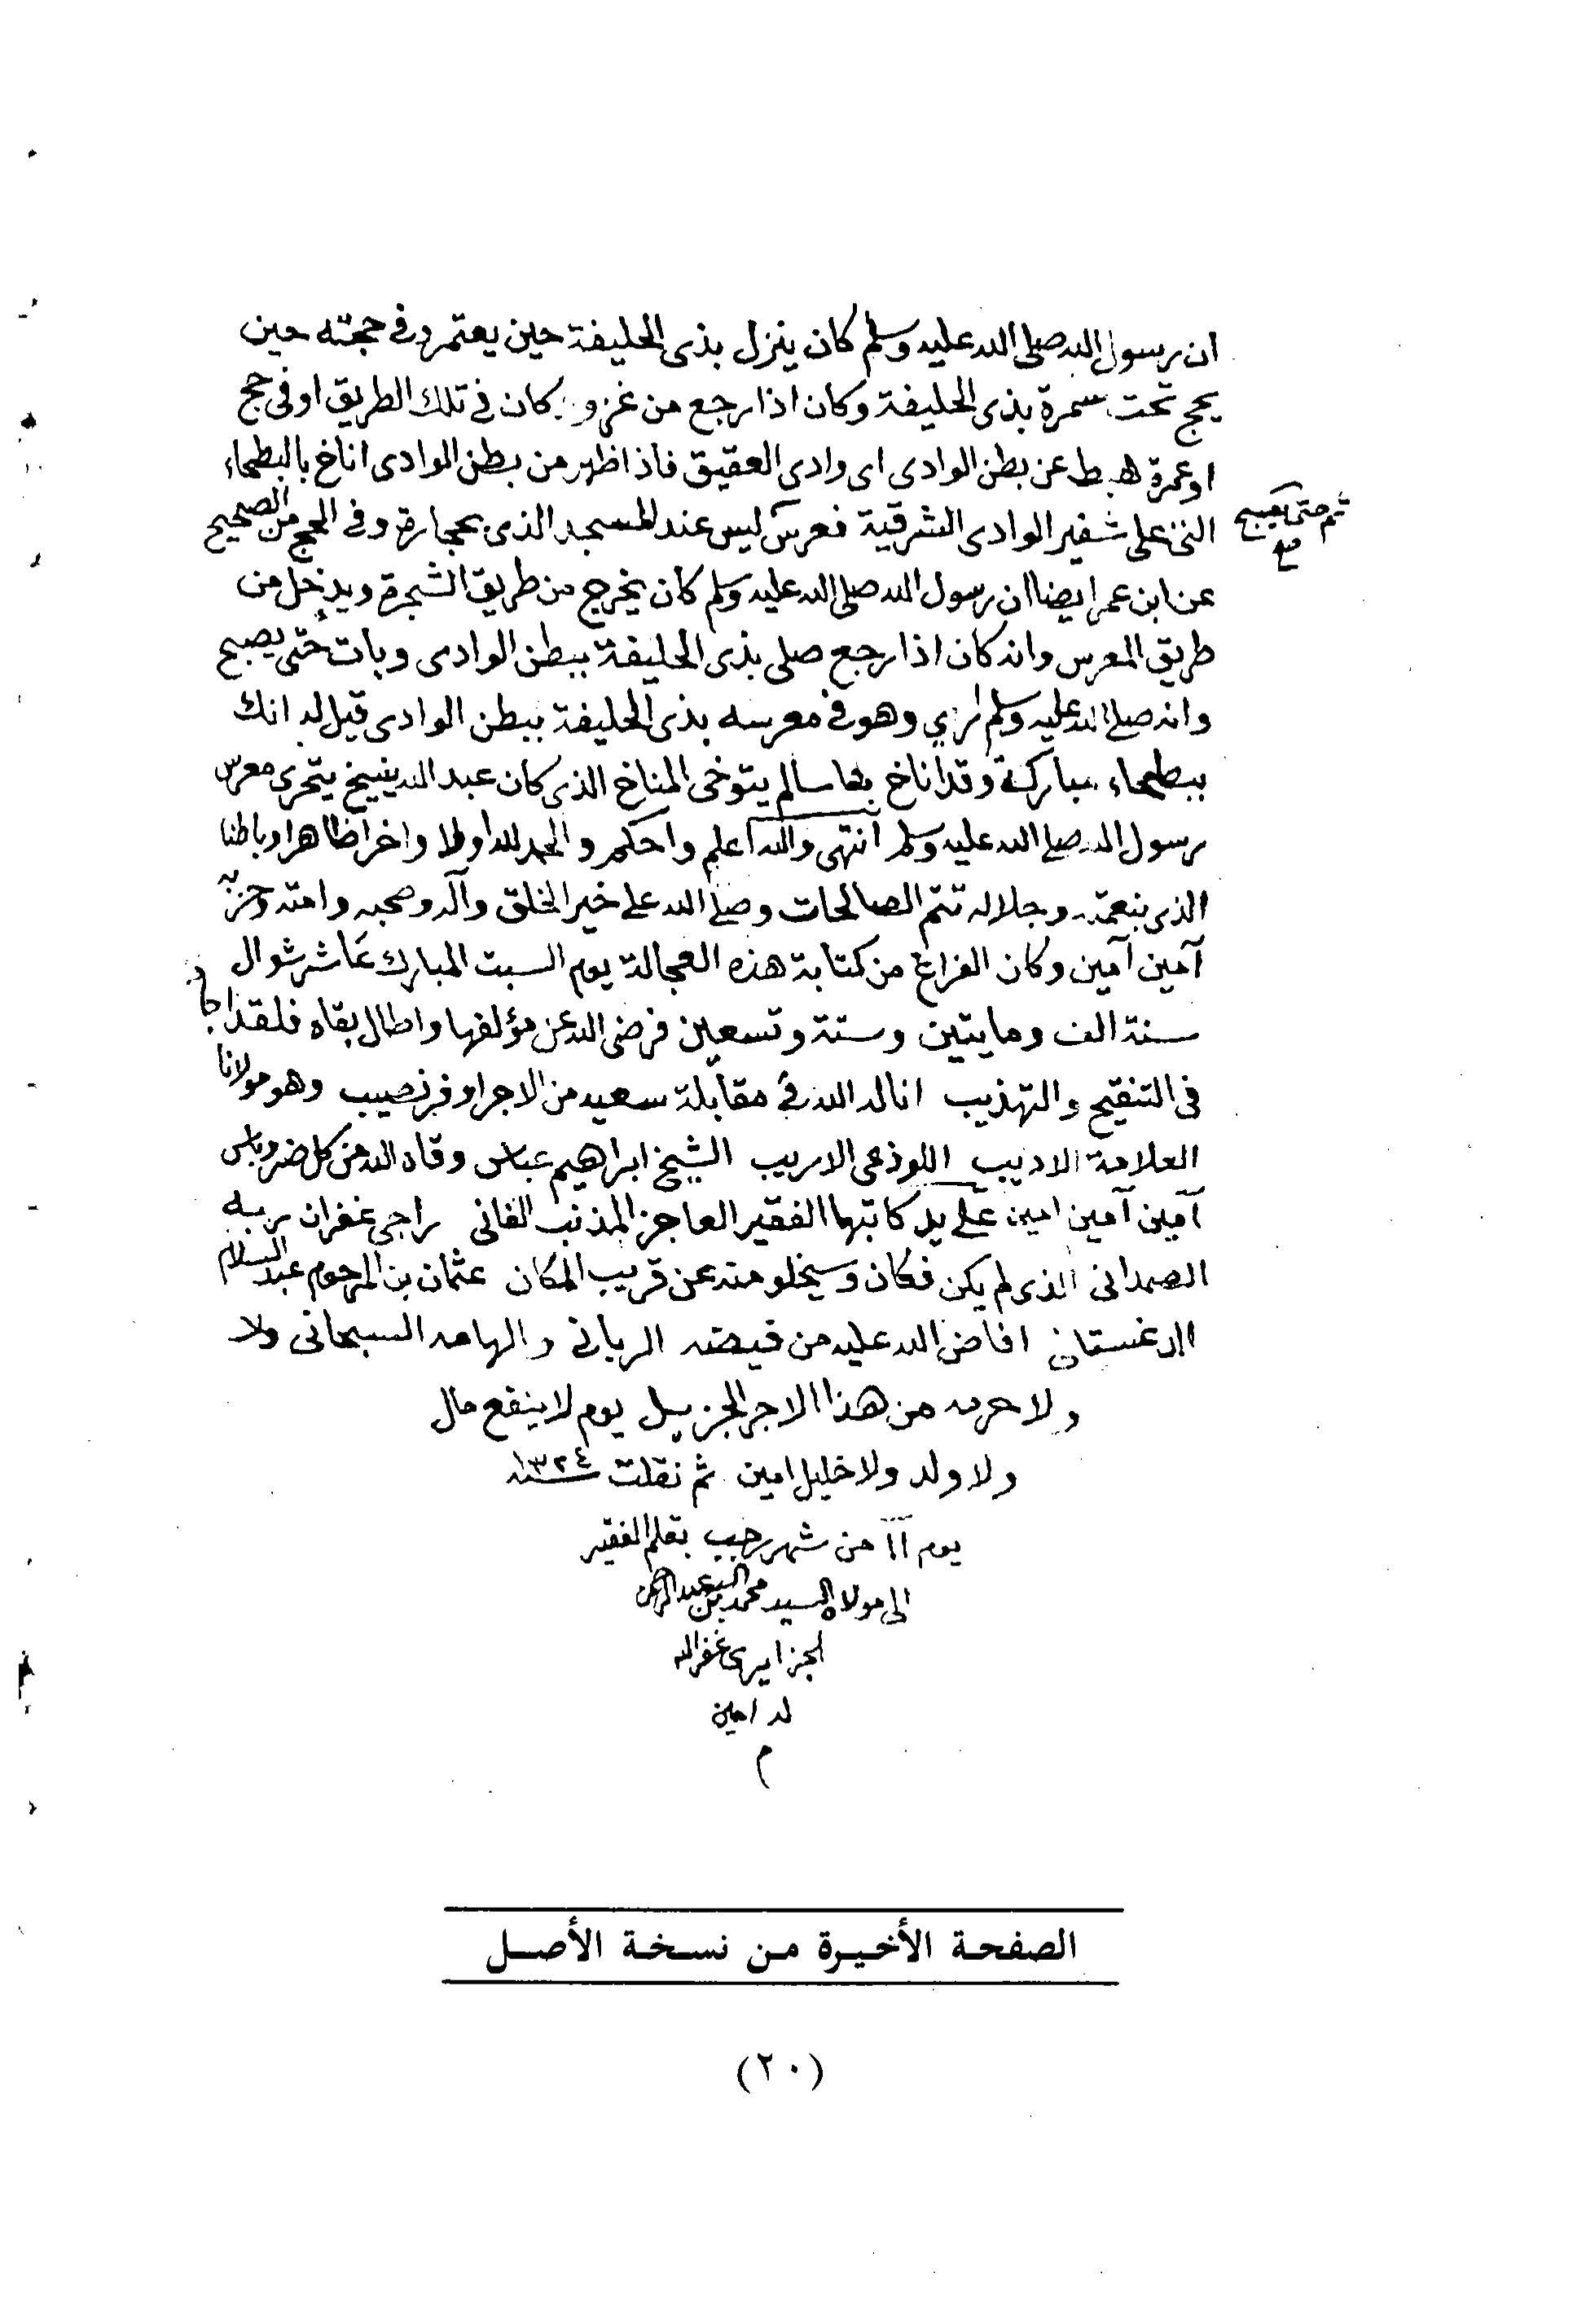 ان رسول الله صلى الله عليه وسلم كان ينزل بذى الحليفة حين يعتمر وفى حجته حين
يحج تحت سمرة بذى الحليفة وكان اذا رجع من غزو كان فى تلك الطريق او فى حج
او عمرة هبط عن بطن الوادى اى وادى العقيق فاذا ظهر من بطن الوادى اناخ بالبطحاء
التى على شفير الوادى الشرقية فعرس ليس عند المسجد الذى بحجارة وفى الحج من الصحيح
ثم حتى يصبح
صح
عن ابن عمر ايضا ان رسول الله صلى الله عليه وسلم كان يخرج من طريق الشجرة ويدخل من
طريق المعرس وانه كان اذا رجع صلى بذى الحليفة ببطن الوادى وبات حتى يصبح
وانه صلى الله عليه وسلم أرى وهو فى معرسه بذى الحليفة ببطن الوادى قيل له انك
ببطحاء مباركة وقد اناخ بها سالم يتوخى المناخ الذى كان عبد الله ينيخ يتحرى معرس
رسول الله صلى الله عليه وسلم انتهى والله اعلم واحكم والحمد لله اولا واخرا ظاهرا وباطنا
الذى بنعمته وجلاله تتم الصالحات وصلى الله على خير الخلق وآله وصحبه وامته وحزبه
آمين آمين وكان الفراغ من كتابة هذه العجالة يوم السبت المبارك عاشر شوال
سنة الف ومايتين وستة وتسعين فرضى الله عن مؤلفها واطال بقاه فلقد اجاد
فى التنقيح والتهذيب اناله الله فى مقابلة سعيه من الاجر اوفر نصيب وهو مولانا
العلامة الاديب اللوذعى الاريب الشيخ ابراهيم عباس وقاه الله من كل ضر وباس
آمين آمين امين على يد كاتبها الفقير العاجز المذنب الفانى راجى غفران ربه
الصمدانى الذى لم يكن فكان وسيخلو منه عن قريب المكان عثمان بن المرحوم عبد السلام
الدغستانى افاض الله عليه من فيضه الربانى والهامه السبحانى ولا
ولا حرمه من هذا الاجر الجزيل يوم لا ينفع مال
ولا ولد ولا خليل امين ثم نقلت سنة ١٣٢٤
يوم ١١ من شهر رجب بقلم الفقير
الى مولاه السيد محمد بن السيد عبد الرحمن
الجزايرى غفر الله
له امين
م
الصفحة الأخيرة من نسخة الأصل
(٢٠)